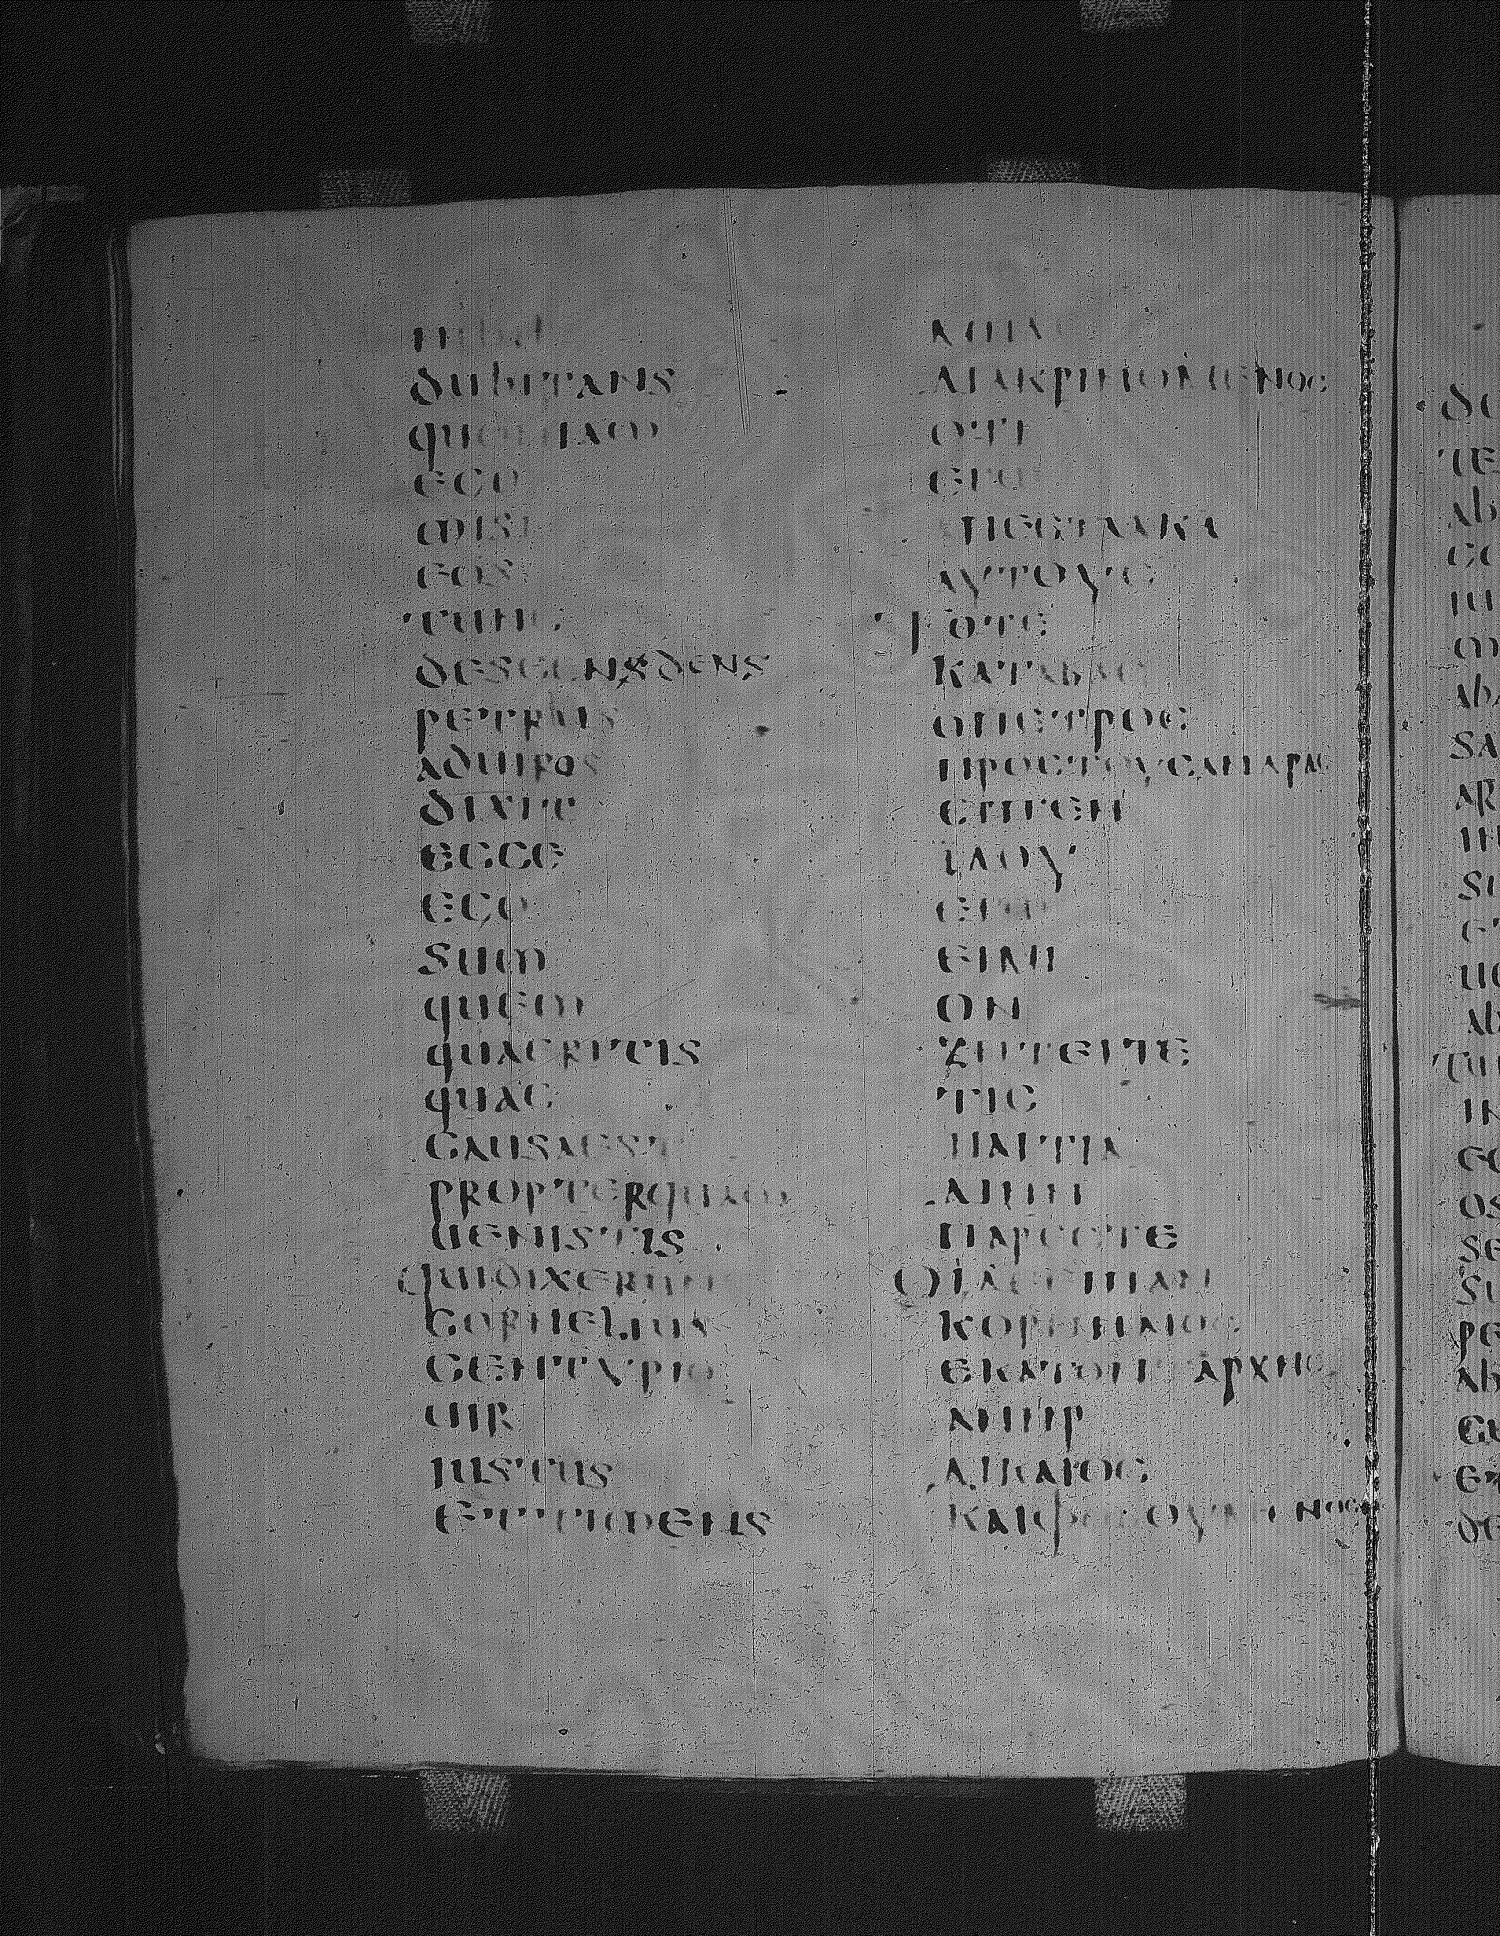 nihil
dubitans
quoniam
ego
misi
eos
tunc
descens dens
petrus
aduiros
dixit
ecce
ego
sum
quem
quaeritis
quae
causaest
propterquam
uenistis
Quidixerunt
cornelius
centyrio
uir
iustus
ettimens
ΔΙΑΚΡΙΝΟΜΕΝΟC
ΟΤΙ
ΕΓΩ
ΑΠΕCΤΑΛΚΑ
ΑΥΤΟΥC
ΤΟΤΕ
ΚΑΤΑΒΑC
ΟΠΕΤΡΟC
ΠΡΟCΤΟΥCΑΝΔΡΑC
ΕΙΠΕΝ
ΙΔΟΥ
ΕΓΩ
ΕΙΜΙ
ΟΝ
ΖΗΤΕΙΤΕ
ΤΙC
ΗΑΙΤΙΑ
ΔΙΗΝ
ΠΑΡΕCΤΕ
ΟΙΔΕΕΙΠΑΝ
ΚΟΡΝΗΛΙΟC
ΕΚΑΤΟΝΤΑΡΧΗC
ΑΝΗΡ
ΔΙΚΑΙΟC
ΚΑΙΦΟΒΟΥΜΕΝΟC